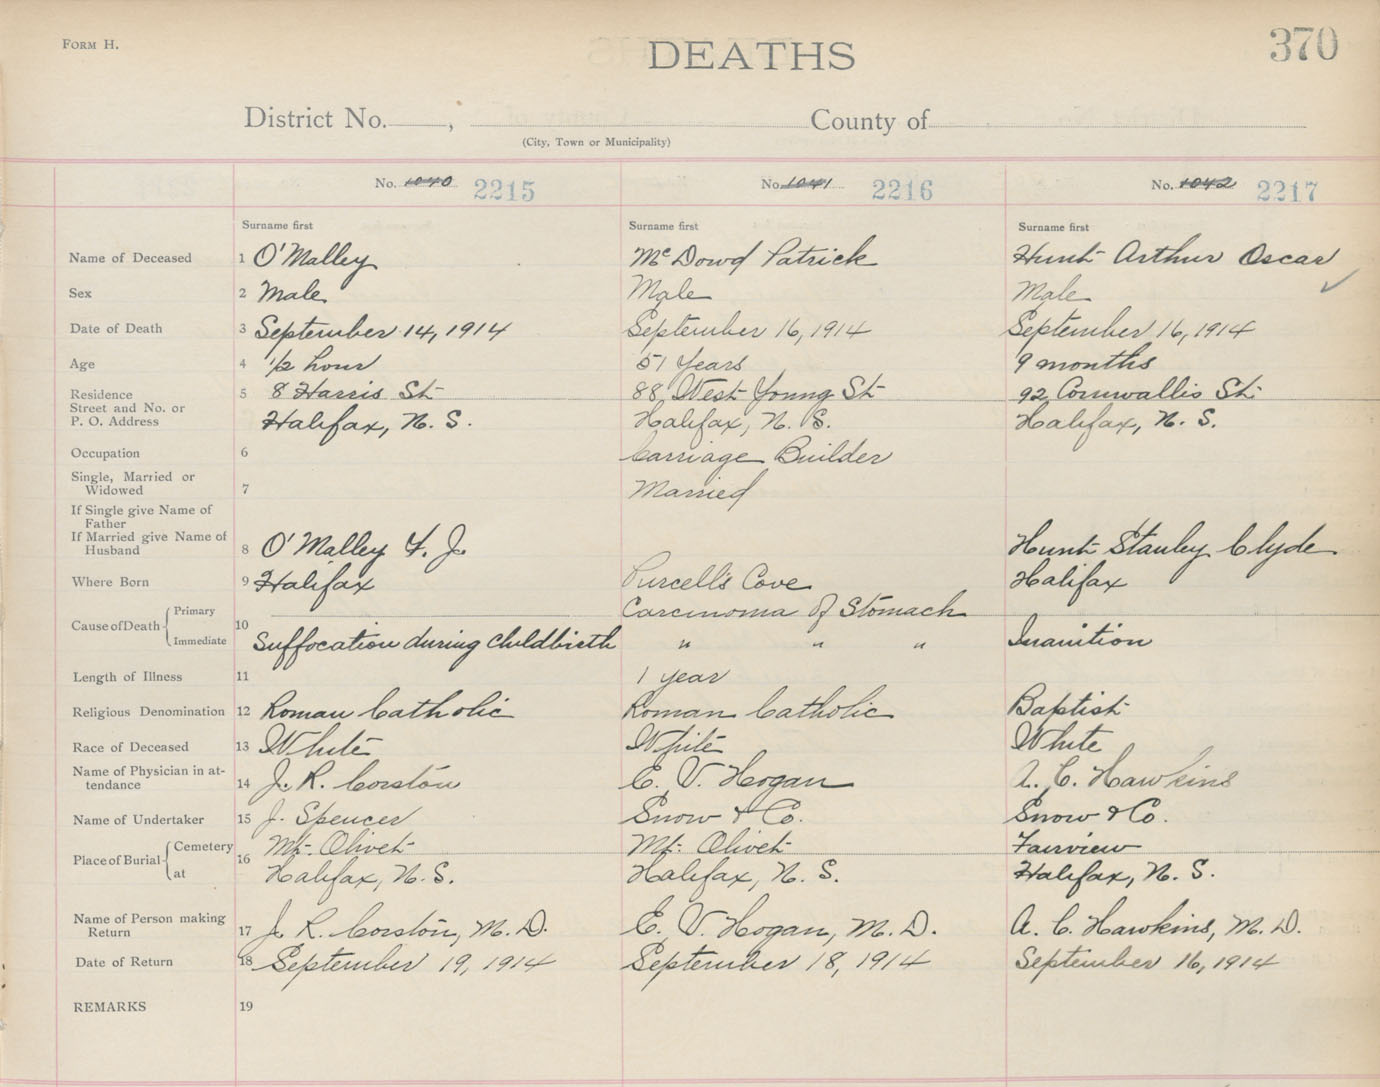 FORM H.
DEATHS
370
District No. , County of
(City, Town or Municipality)
No. 1040 2215 No. 1041 2216 No. 1042 2217
Surname first Surname first Surname first
Name of Deceased 1 O'Malley McDowd Patrick Hunt Arthur Oscar
Sex 2 Male Male Male
Date of Death 3 September 14, 1914 September 16, 1914 September 16, 1914
Age 4 1/2 hour 51 Years 9 months
Residence 5 8 Harris St 88 West Young St 92 Cornwallis St
Street and No. or
P. O. Address Halifax, N. S. Halifax, N. S. Halifax, N. S.
Occupation 6 Carriage Builder
Single, Married or
Widowed 7 Married
If Single give Name of
Father
If Married give Name of
Husband 8 O'Malley F. J. Hunt Stanley Clyde
Where Born 9 Halifax Purcell's Cove Halifax
Cause of Death Primary 10 Carcinoma of Stomach
Immediate Suffocation during Childbirth " " " Inanition
Length of Illness 11 1 year
Religious Denomination 12 Roman Catholic Roman Catholic Baptist
Race of Deceased 13 White White White
Name of Physician in at-
tendance 14 J. R. Corston E. V. Hogan A. C. Hawkins
Name of Undertaker 15 J. Spencer Snow & Co. Snow & Co.
Place of Burial Cemetery 16 Mt. Olivet Mt. Olivet Fairview
at Halifax, N. S. Halifax, N. S. Halifax, N. S.
Name of Person making
Return 17 J. R. Corston, M. D. E. V. Hogan, M. D. A. C. Hawkins, M. D.
Date of Return 18 September 19, 1914 September 18, 1914 September 16, 1914
REMARKS 19